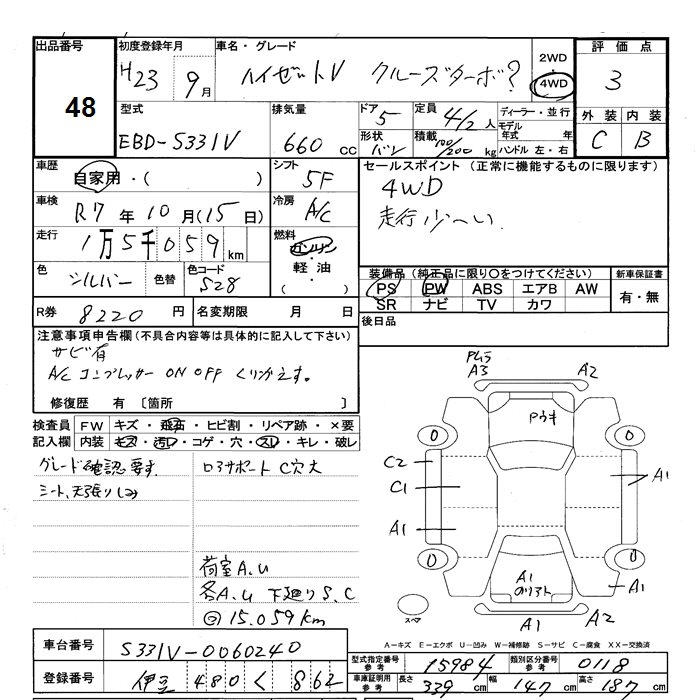 出品番号 初度登録年月 車名・グレード 2WD・4WD 評価点
48 H23年 9月 ハイゼットV クルーズターボ? 3
型式 排気量 ドア 5 定員 4/2人 ディーラー・並行 外装 内装
モデル年式 年
EBD-S331V 660cc 形状 バン 積載 100/200kg ハンドル 左・右 C B
車歴 自家用・( ) シフト 5F セールスポイント(正常に機能するものに限ります)
4WD
車検 R7年10月(15日) 冷房 A/C
走行少〜い
走行 1万5千059km 燃料 ガソリン・軽油・( )
色 シルバー 色替 色コード S28
装備品(純正品に限り○をつけてください) 新車保証書
PS PW ABS エアB AW 有・無
SR ナビ TV カワ
R券 8220円 名変期限 月 日 後日品
注意事項申告欄(不具合内容等は具体的に記入して下さい)
サビ有
A/C コンプレッサー ON OFF くりかえす。
修復歴 有〔箇所 〕
検査員記入欄 FW キズ・飛石・ヒビ割・リペア跡・×要
内装 キズ・汚レ・コゲ・穴・スレ・キレ・破レ
グレード確認要す ロアサポートC穴大
シート、天張りしみ
荷室A.U
各A.U 下廻りS.C
◎15.059km
A3 A2
Pウキ
0 0
C2
C1 A1
A1
0 0
A1
A1 A1 A2
スペア
A-キズ E-エクボ U-凹み W-補修跡 S-サビ C-腐食 XX-交換済
車台番号 S331V-0060240
型式指定番号 参考 15984 類別区分番号 参考 0118
登録番号 伊豆 480 く 862
車庫証明用 参考 長さ 339cm 幅 147cm 高さ 187cm